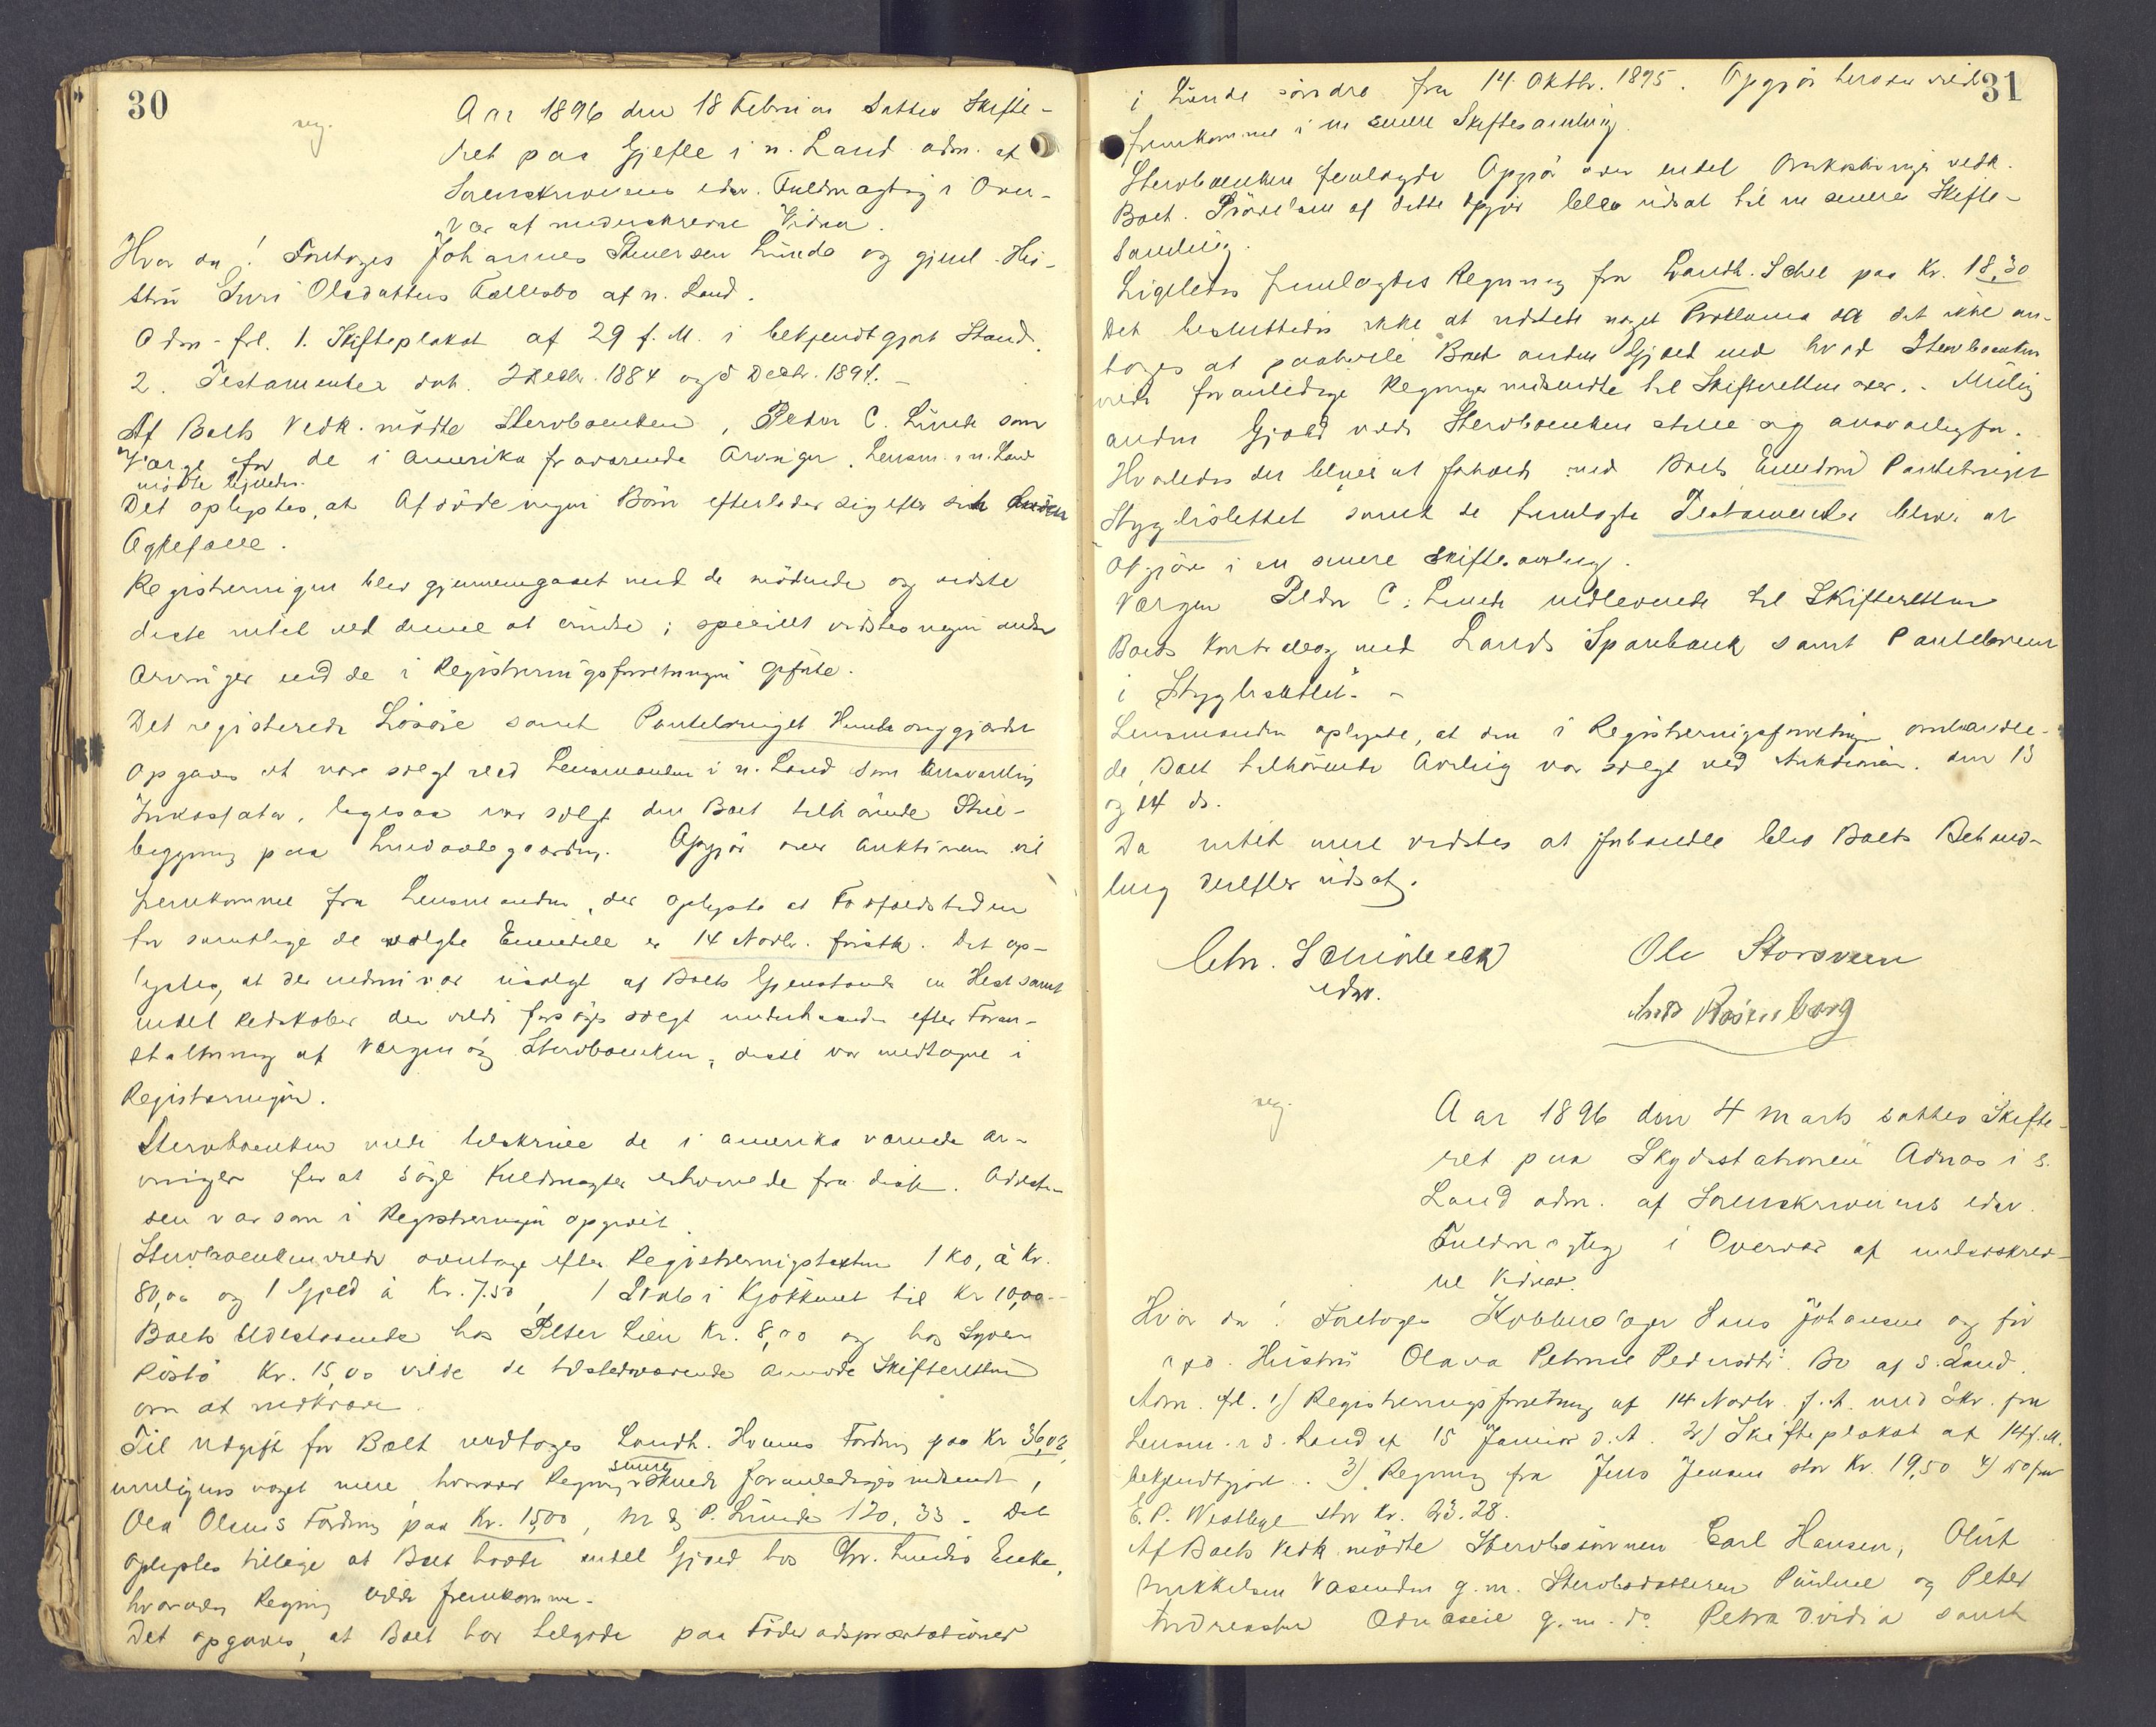 30
reg.
Aar 1896 den 18 Februar sattes Skifte-
ret paa Gjefle i n. Land adm. af
Sorenskriverens edsv. Fuldmægtig i Over-
vær af underskrevne Vidner.
Hvor da! Foretoges Johannes Steensen Lunde og gjenl. Hu-
stru Guri Olsdatters Fællesbo af n. Land.
Adm. frl. 1. Skifteplakat af 29 f. M. i bekjendtgjort Stand.
2. Testamenter dat. 2 Decbr. 1884 og 5 Decbr. 1894. -
Af Boets Vedk. mødte Stervboenken, Peder C. Lunde som
Værge for de i Amerika fraværende Arvinger. Lensm. i n. Land
mødte ligeledes.
Det oplystes, at Afdøde ingen Børn efterlader sig efter sit
Ægtefælle.
Registreringen blev gjennemgaaet med de mødende og vidste
disse intet ved denne at erindre; specielt vidstes ingen andre
Arvinger end de i Registreringsforretningen opførte.
Det registrerede Løsøre samt Pantebrevet
opgaves at være solgt ved Lensmanden i n. Land som ansvarlig
Inkassator, ligesaa var solgt den Boet tilhørende Stue-
bygning paa . Opgjør over Auktionen vil
fremkomme fra Lensmanden, der oplyste at Forfaldstiden
for samtlige de solgte Eiendele er 14 Novbr. førstk. Det op-
lystes, at der endnu var usolgt af Boets Gjenstande en Hest samt
endel Redskaber der vilde forsøges solgt underhaanden efter Foran-
staltning af Værgen og Stervboenken, disse var medtagne i
Registreringen.
Stervboenken vilde tilskrive de i Amerika værende Ar-
vinger for at søge Fuldmagter erhvervede fra disse. Adres-
sen var som i Registreringen opgivet.
Stervboenken vilde overtage efter Registreringstaxten 1 Ko, à Kr.
80,00 og 1 Gjeld à Kr. 7.50, 1 i Kjøkkenet til Kr 10,00.-
Boets Udestaaende hos Peter Lien Kr. 8,00 og hos
Kr. 15,00 vilde de tilstedeværende anmode Skifteretten
om at indkræve.
Til Udgift for Boet vedtoges Landh. Fordring paa Kr 36,02,
muligens noget mere, hvorover Regning senere foranlediges indsendt,
Ola Olsens Fordring paa Kr. 15,00, P. Lunde 120.33 - Det
oplystes tillige at Boet havde endel Gjæld hos Chr. Enke,
hvorover Regning vilde fremkomme.-
Det opgaves, at Boet har tilgode paa Føderaadspræstationer
31
i Lunde søndre fra 14 Oktbr. 1895. Opgjør herover vilde
fremkomme i en senere Skiftesamling.
Stervboenken fremlagde Opgjør over endel Omkostninger vedk.
Boet. Prøvelsen af dette Opgjør blev udsat til en senere Skifte-
samling.
Ligeledes fremlagdes Regning fra Landh. paa Kr. 18,30
Det besluttedes ikke at udstede noget Proklama da det ikke an-
toges at paahvile Boet anden Gjæld end hvad Stervboenken
vilde foranledige Regninger indsendte til Skifteretten over. - Mulig
anden Gjæld vilde Stervboenken stille sig ansvarlig for.
Hvorledes der bliver at forholde med Boets Eiendom Pantebrevet
Styglisættet samt de fremlagte Testamenter bliver at
afgjøre i en senere Skiftesamling.
Værgen Peder C. Lunde indleverede til Skifteretten
Boets Kontrabog med Lands Sparebank samt Pantebrevet
i Styglisættet. -
Lensmanden oplyste, at den i Registreringsforretningen omhandle-
de, Boet tilhørende Avling var solgt ved Auktionen den 13
og 14 ds.
Da intet mere vidstes at forhandle blev Boets Behand-
ling derefter udsat.
Chr. Schiørbeck
edsv.
Ole Storsveen
Rosenberg
reg.
Aar 1896 den 4 Marts sattes Skifte-
ret paa Skydsstationen Odnæs i s.
Land adm. af Sorenskriverens edsv.
Fuldmægtig i Overvær af underskrev-
ne Vidner.
Hvor da! Foretoges Kobberslager Hans Johansen og før
afd. Hustru Olava Petrine Pedersdtr. Bo af s. Land.
Adm. frl. 1) Registreringsforretning af 14 Novbr. f. A. med Skr. fra
Lensm. i s. Land af 15 Januar d. A. 2) Skifteplakat af 14 f. M.
bekjendtgjort. 3) Regning fra Jens Jensen stor Kr. 19,50 4) Do fra
E. P. Westbye stor Kr. 23.28.
Af Boets Vedk. mødte Stervbosønnen Carl Hansen, Oluf
Mikkelsen Vasenden g. m. Stervbodatteren Pauline og Peter
Andreassen Odnæseie g. m. do Petra Ovidia samt